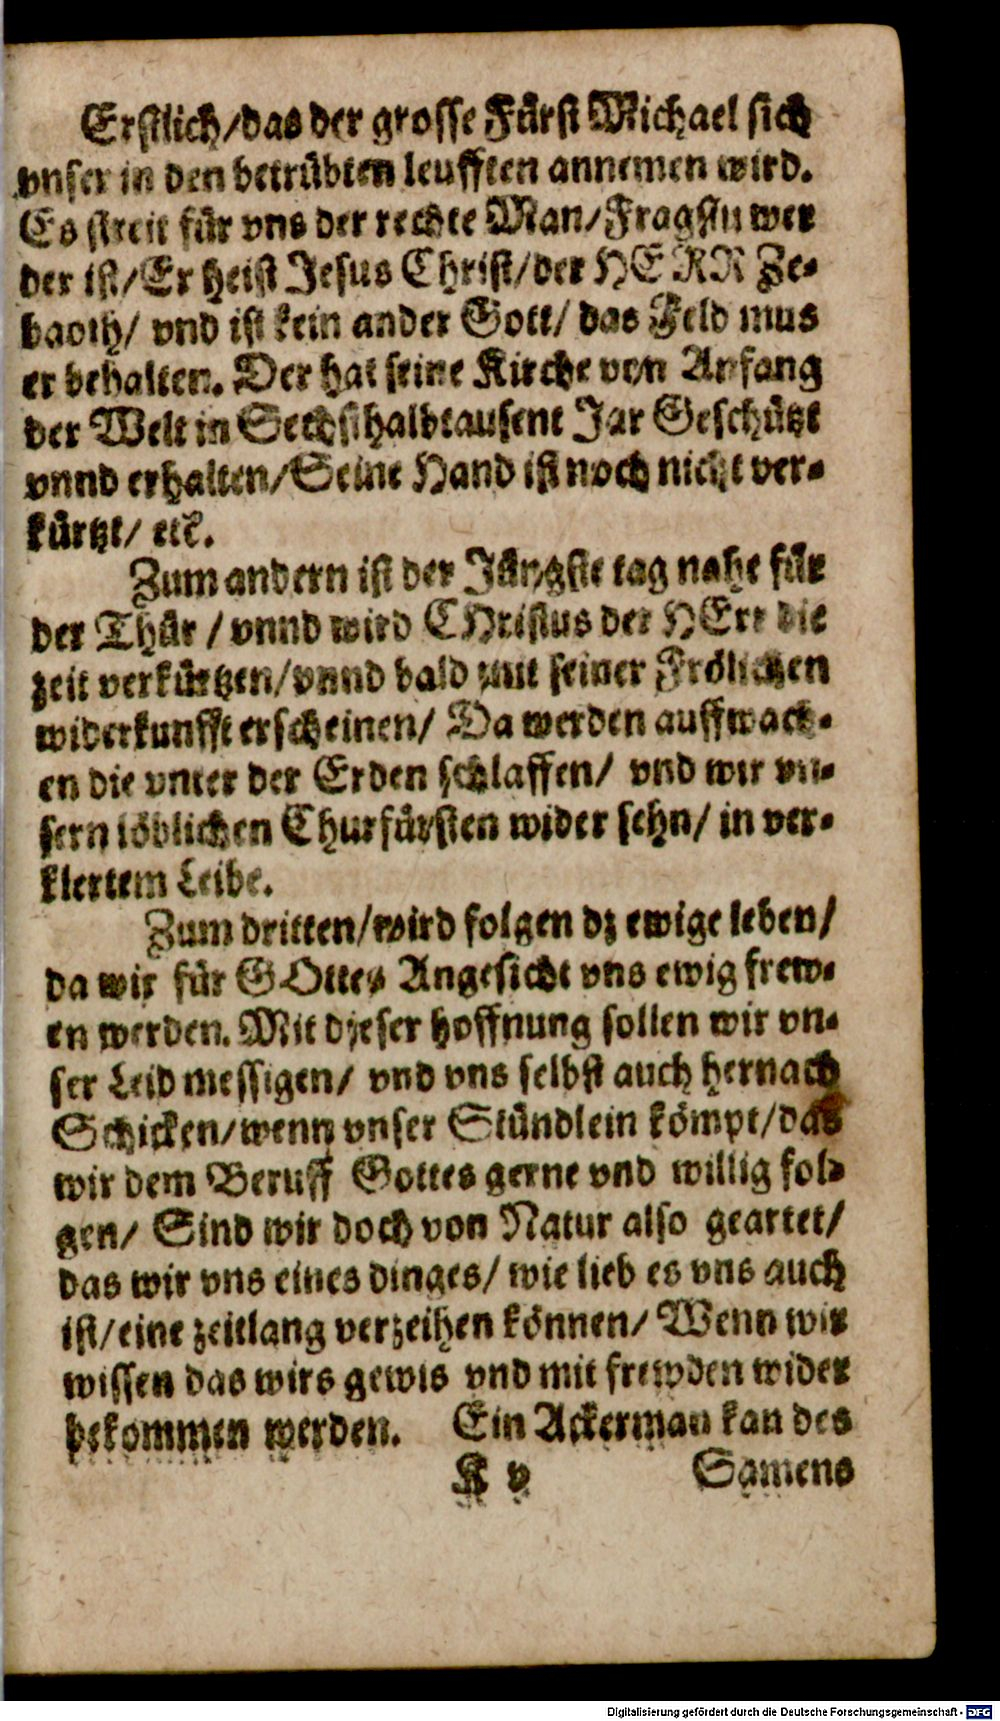 Erstlich/das der grosse Fürst Michael sich
vnser in den betrübten leufften annemen wird.
Es streit für vns der rechte Man/Fragstu wer
der ist/Er heist Jesus Christ/der HERR Ze-
baoth/ vnd ist kein ander Gott/ das Feld mus
er behalten. Der hat seine Kirche von Anfang
der Welt in Sechsthalbtausent Jar Geschützt
vnnd erhalten/Seine Hand ist noch nicht ver-
kürtzt/ etc.
Zum andern ist der Jüngste tag nahe für
der Thür / vnnd wird CHristus der HErr die
zeit verkürtzen/vnnd bald mit seiner Frölichen
widerkunfft erscheinen/ Da werden auffwach-
en die vnter der Erden schlaffen/ vnd wir vn-
sern löblichen Churfürsten wider sehn/ in ver-
klertem Leibe.
Zum dritten/wird folgen dz ewige leben/
da wir für GOttes Angesicht vns ewig frew-
en werden. Mit dieser hoffnung sollen wir vn-
ser Leid messigen/ vnd vns selbst auch hernach
Schicken/wenn vnser Stündlein kömpt/das
wir dem Beruff Gottes gerne vnd willig fol-
gen/ Sind wir doch von Natur also geartet/
das wir vns eines dinges/ wie lieb es vns auch
ist/eine zeitlang verzeihen können/ Wenn wir
wissen das wirs gewis vnd mit frewden wider
bekommen werden. Ein Ackerman kan des
K v Samens
Digitalisierung gefördert durch die Deutsche Forschungsgemeinschaft - DFG